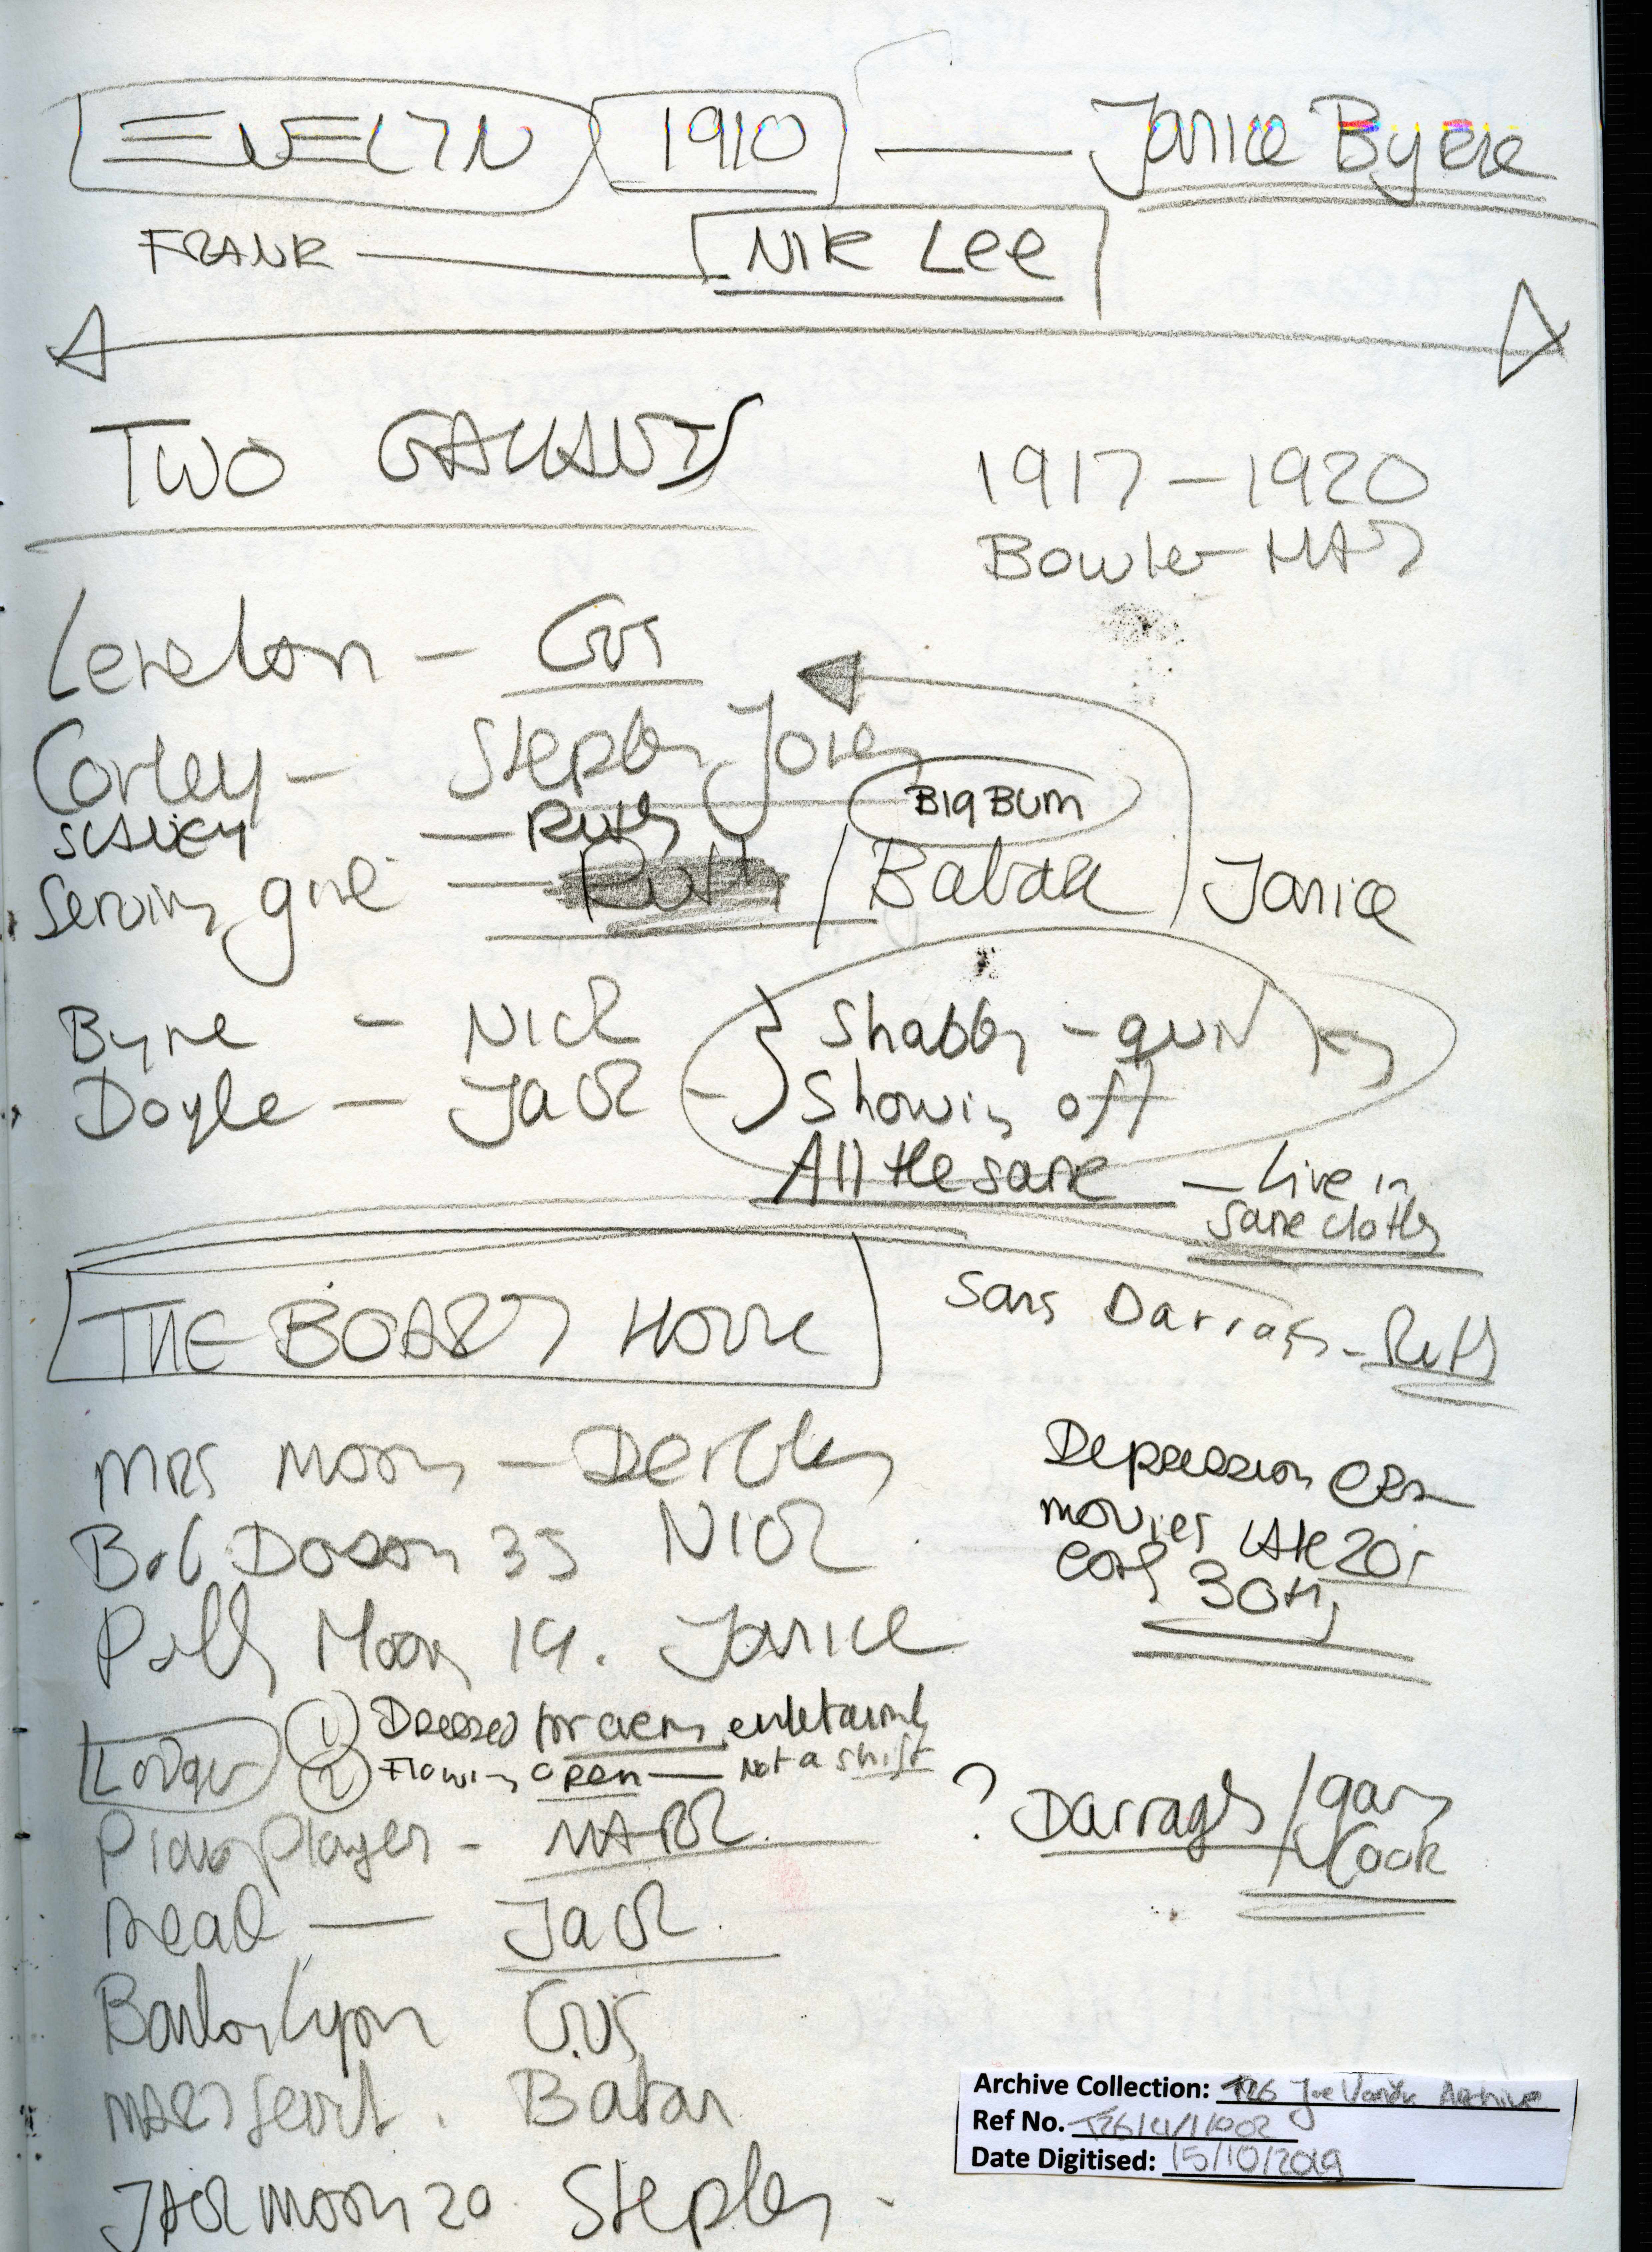 EVELYN 1910 — Janice Byrne
FRANK — Nik Lee
TWO GALLANTS
1917 – 1920
Bowler HAT
Lenehan – Gus
Corley – Stephen Jones
SLAVEY — Ruth
BIG BUM
Serving girl — Ruth / Babak / Janice
Byrne – Nick
Doyle – Jack
Shabby – gun
Showing off
All the same — Live in
same cloths
THE BOARD House
Sans Darragh – Ruth
MRS Moon – Dervla
Bob Doran 35 Nick
Polly Moon 19. Janice
Depression era
movies late 20s
early 30ths
Lodger 1) Dressed for
2) Flowing open — Not a shift
Piano Player – MARK
Mead — Jack
? Darragh / Gary
Cook
Gus
Jack Moon 20 Stephen
Archive Collection: T26 Joe Vanek Archive
Ref No. T26/4/1/002
Date Digitised: 15/10/2019